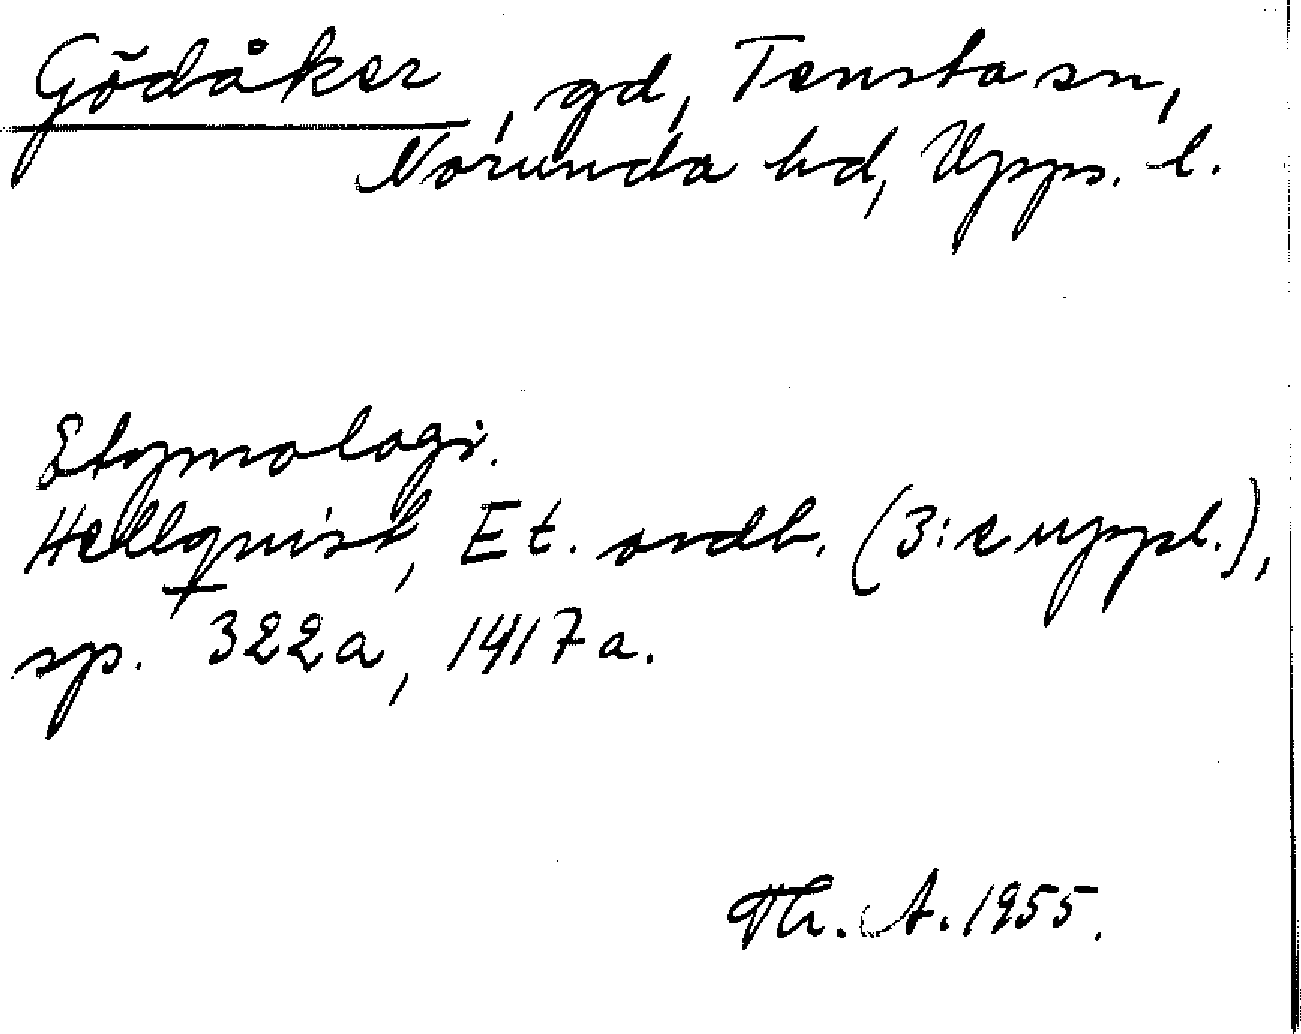 Gödåker, gd, Tensta sn,
Norunda hd, Upps. l.
Etymologi.
Hellquist, Et. ordb. (3:e uppl.),
sp. 322a, 1417a.
Th. A. 1955.